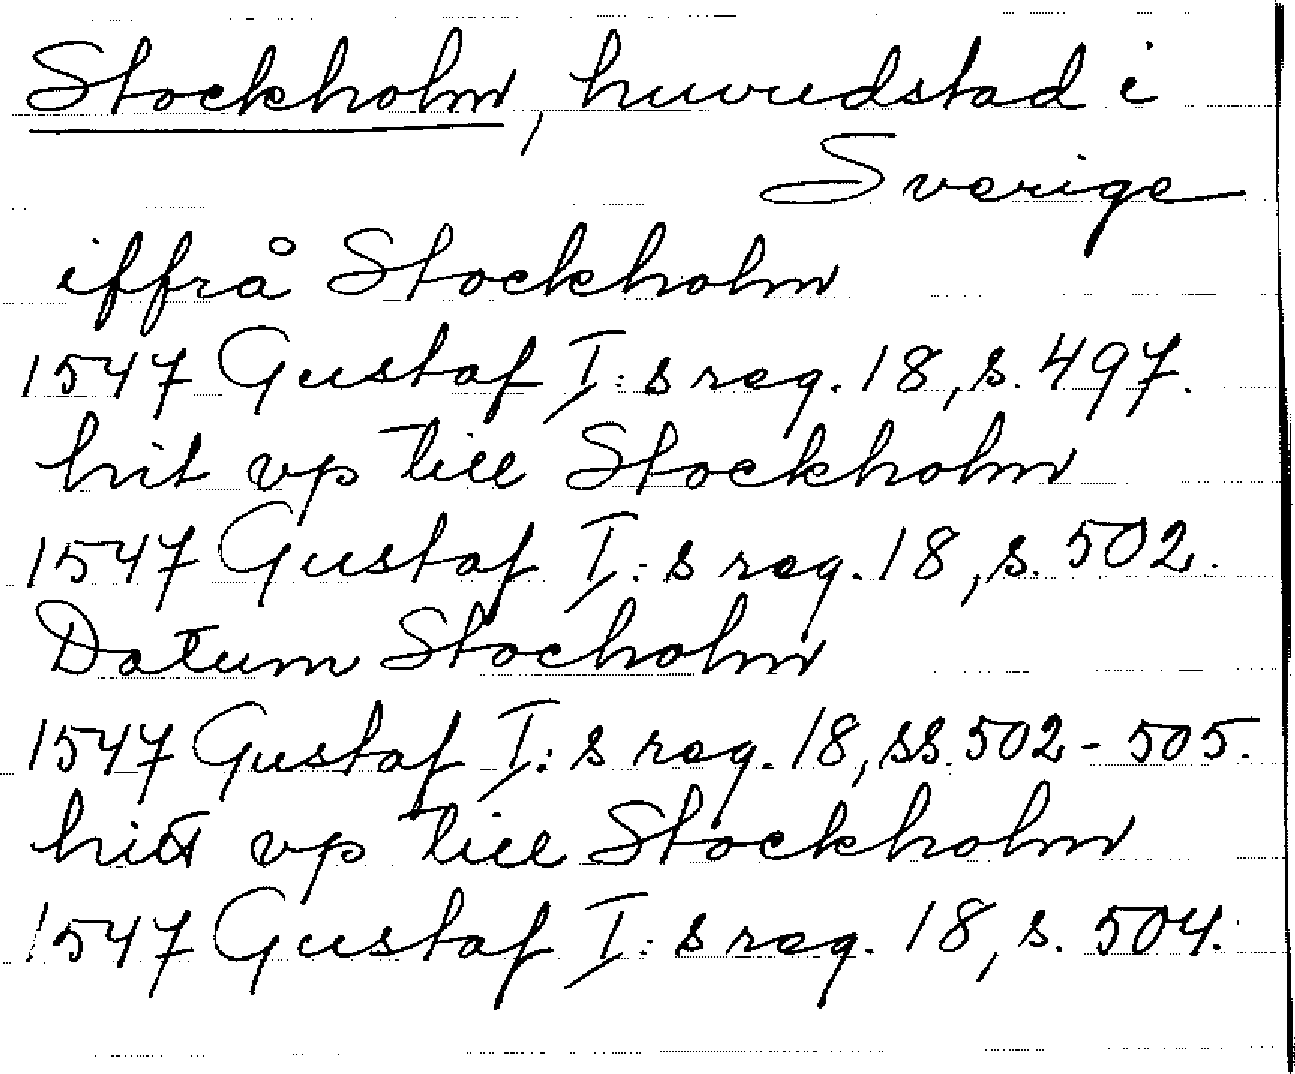 Stockholm, huvudstad i
Sverige
iffrå Stockholm
1547 Gustaf I:s reg. 18, s. 497.
hit vp till Stockholm
1547 Gustaf I:s reg. 18, s. 502.
Datum Stocholm
1547 Gustaf I:s reg. 18, ss. 502-505.
hiit vp till Stockholm
1547 Gustaf I:s reg. 18, s. 504.